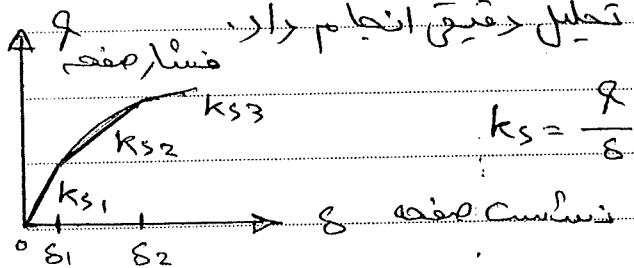 تحلیل دقیقی انجام داد.
q
فشار صفحه
ks3
ks = q/δ
ks2
ks1
نشست صفحه δ
0 δ1 δ2